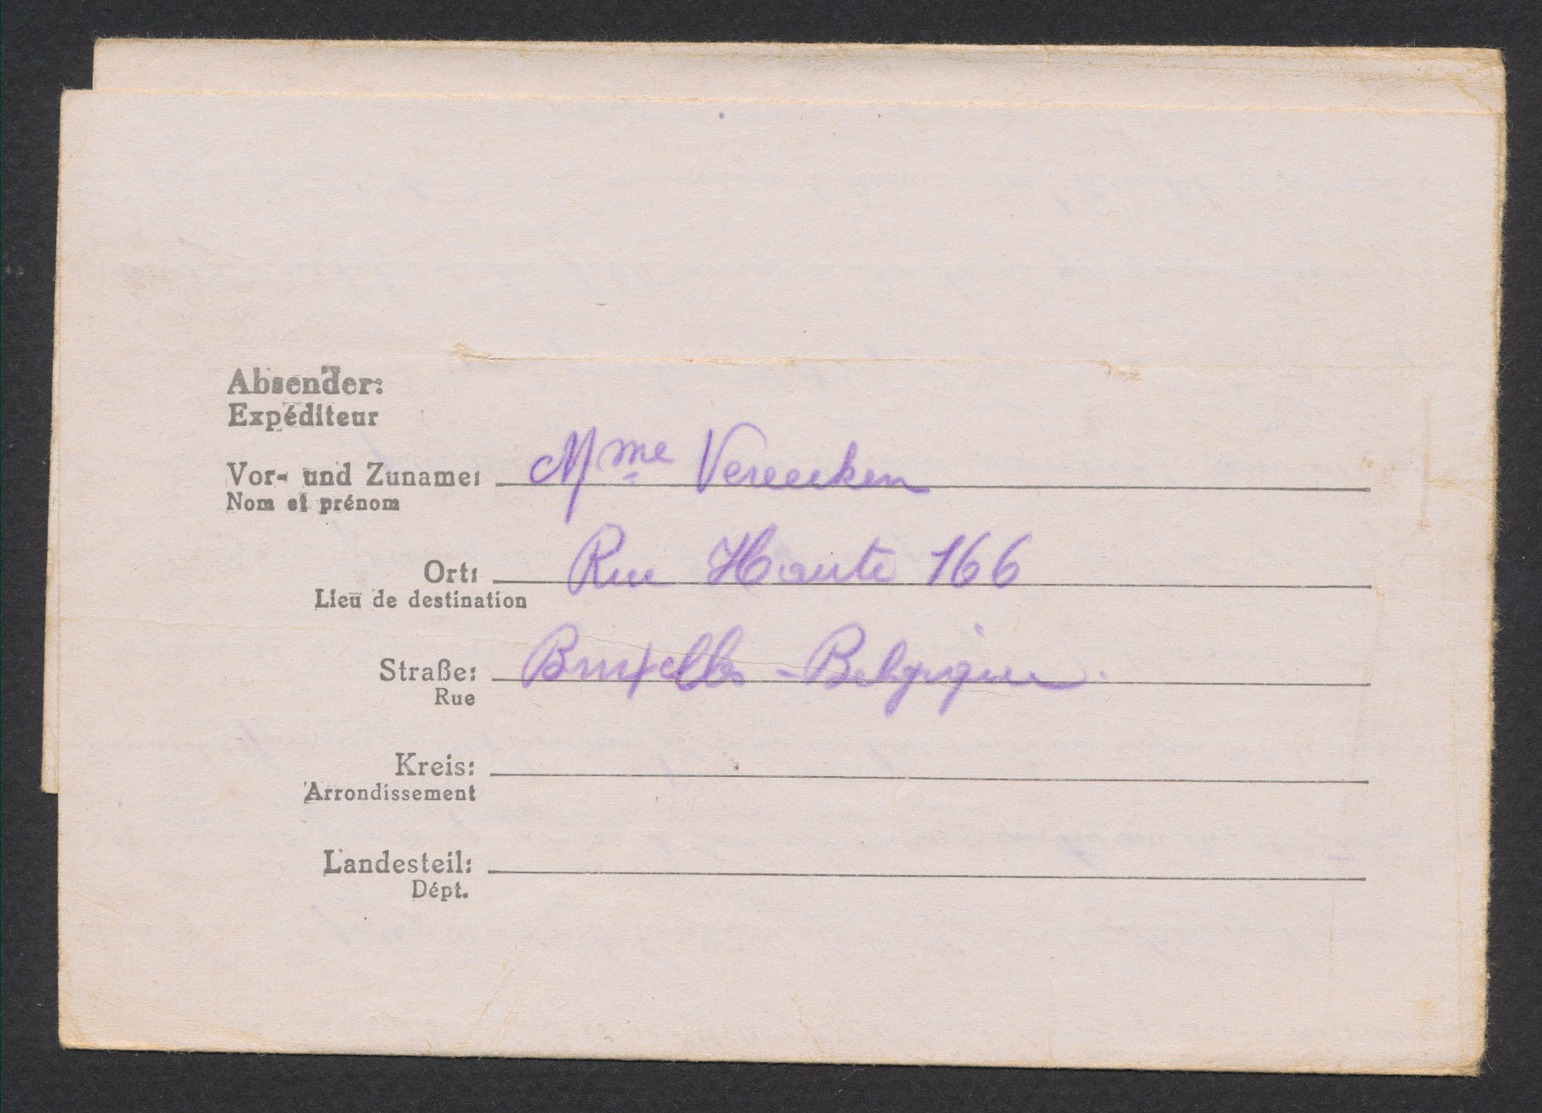 Absender:
Expéditeur
Vor- und Zuname: Mme Vereecken
Nom et prénom
Ort: Rue Haute 166
Lieu de destination
Straße: Bruxelles - Belgique.
Rue
Kreis:
Arrondissement
Landesteil:
Dépt.